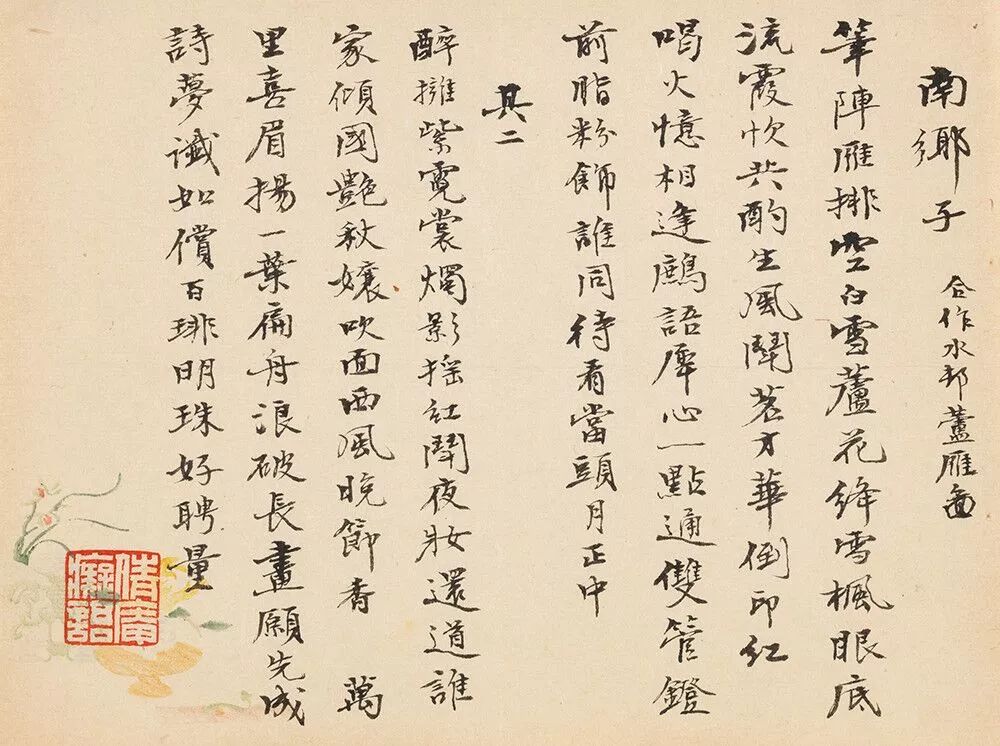 南鄉子 合作水邨蘆雁啚
筆陣雁排空白雪蘆花絳雪楓眼底
流霞欣共酌生風鬭茗才華倒印紅
喝火憶相逢鷓語犀心一點通雙管鐙
前脂粉飾誰同待看當頭月正中
其二
醉擁紫霓裳燭影搖紅鬭夜妝還道誰
家傾國艷秋孃吹面西風晚節香 萬
里喜眉揚一葉扁舟浪破長畫願先成
詩夢讖如償百琲明珠好聘量
倩庵
癡語